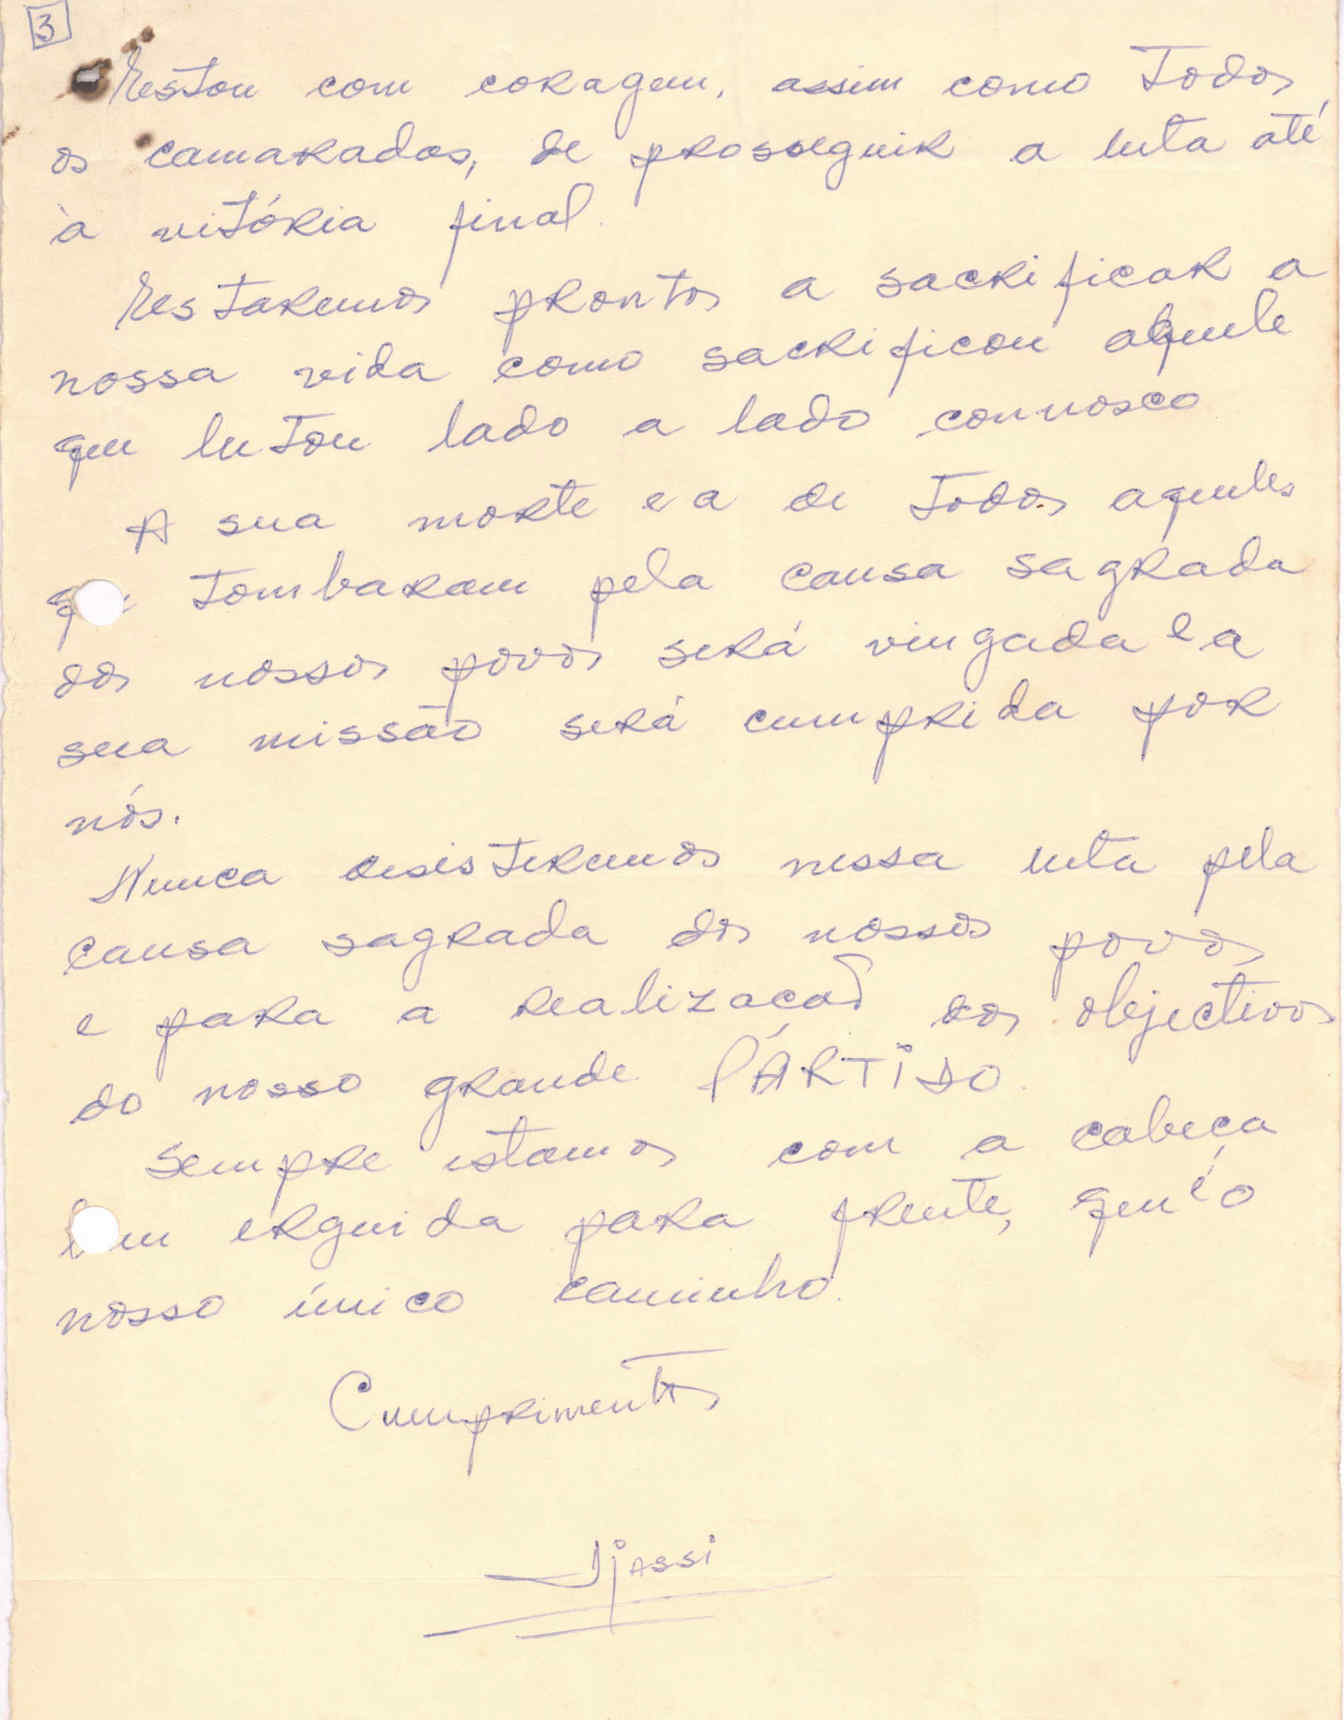 3
Estou com coragem, assim como todos
os camaradas, de prosseguir a luta até
à vitória final.
Estaremos prontos a sacrificar a
nossa vida como sacrificou aquele
que lutou lado a lado connosco
A sua morte e a de todos aqueles
que tombaram pela causa sagrada
dos nossos povos será vingada e a
sua missão será cumprida por
nós.
Nunca desisteremos nessa luta pela
causa sagrada dos nossos povos
e para a realização dos objectivos
do nosso grande PÁRTIDO.
Sempre estamos com a cabeça
bem erguida para frente, que é o
nosso único caminho.
Cumprimentos
Djassi